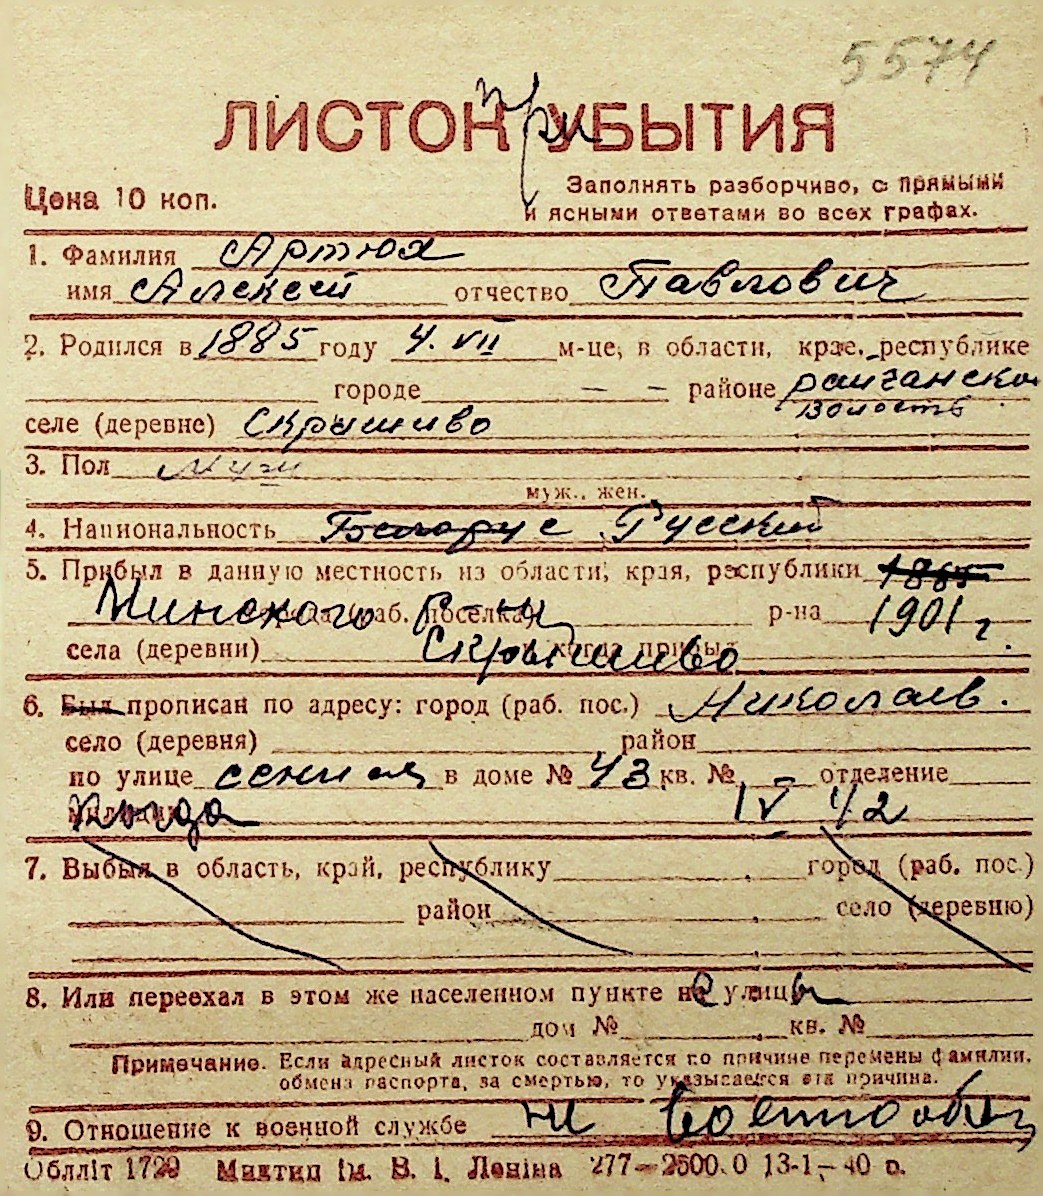 5574
ЛИСТОК при УБЫТИЯ
Цена 10 коп.
Заполнять разборчиво, с прямыми
и ясными ответами во всех графах.
1. Фамилия Артюх
имя Алексей отчество Павлович
2. Родился в 1885 году 4. VII м-це, в области, крае, республике
городе — — районе
волость
селе (деревне) Скрышиво
3. Пол муж
муж., жен.
4. Национальность Белорус Русский
5. Прибыл в данную местность из области, края, республики 1885
Минского города (раб. поселка) р-н р-на 1901 г
села (деревни) и когда прибыл Скрышиво
6. Был прописан по адресу: город (раб. пос.) Николаев.
село (деревня) район
по улице сенная в доме № 43 кв. № — отделение
милиции когда IV 42
7. Выбыл в область, край, республику город (раб. пос.)
район село (деревню)
8. Или переехал в этом же населенном пункте на с улицы
дом № кв. №
Примечание. Если адресный листок составляется по причине перемены фамилии,
обмена паспорта, за смертью, то указывается эта причина.
9. Отношение к военной службе не военнообяз
Обллiт 1729 Миктип iм. В. I. Ленiна 277—2500.0 13-1,-40 р.